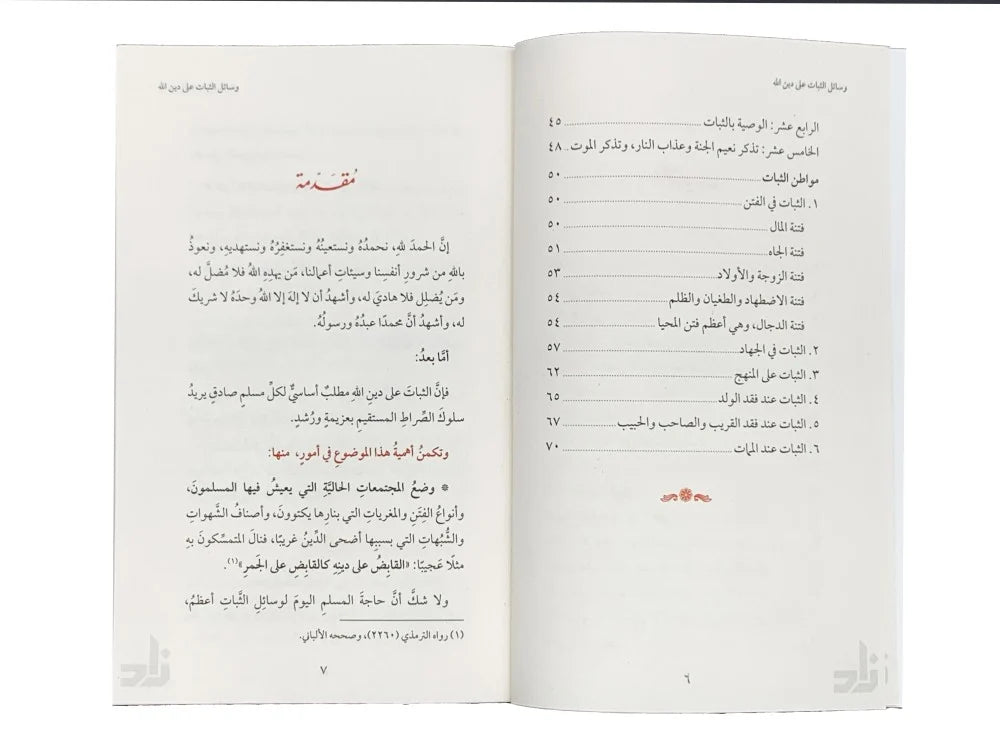 وسائل الثبات على دين الله
الرابع عشر: الوصية بالثبات ٤٥
الخامس عشر: تذكر نعيم الجنة وعذاب النار، وتذكر الموت ٤٨
مواطن الثبات ٥٠
١. الثبات في الفتن ٥٠
فتنة المال ٥٠
فتنة الجاه ٥١
فتنة الزوجة والأولاد ٥٣
فتنة الاضطهاد والطغيان والظلم ٥٤
فتنة الدجال، وهي أعظم فتن المحيا ٥٤
٢. الثبات في الجهاد ٥٧
٣. الثبات على المنهج ٦٢
٤. الثبات عند فقد الولد ٦٥
٥. الثبات عند فقد القريب والصاحب والحبيب ٦٧
٦. الثبات عند الممات ٧٠
٦
زاد
وسائل الثبات على دين الله
مُقَدّمة
إنَّ الحمدَ للهِ، نحمدُهُ ونستعينُهُ ونستغفِرُهُ ونستهديهِ، ونعوذُ
باللهِ من شرورِ أنفسِنا وسيئاتِ أعمالنا، مَن يهدِهِ اللهُ فلا مُضلَّ له،
ومَن يُضلِل فلا هاديَ له، وأشهدُ أن لا إلهَ إلا اللهُ وحدَهُ لا شريكَ
له، وأشهدُ أنَّ محمدًا عبدُهُ ورسولُهُ.
أمَّا بعدُ:
فإنَّ الثباتَ على دينِ اللهِ مطلبٌ أساسيٌّ لكلِّ مسلمٍ صادقٍ يريدُ
سلوكَ الصِّراطِ المستقيمِ بعزيمةٍ ورُشدٍ.
وتكمنُ أهميةُ هذا الموضوعِ في أمورٍ، منها:
* وضعُ المجتمعاتِ الحاليَّةِ التي يعيشُ فيها المسلمونَ،
وأنواعُ الفِتَنِ والمغرياتِ التي بنارِها يكتوونَ، وأصنافُ الشَّهواتِ
والشُّبُهاتِ التي بسببِها أضحى الدِّينُ غريبًا، فنالَ المتمسِّكونَ بهِ
مثلًا عَجيبًا: «القابِضُ على دينِه كالقابِضِ على الجَمرِ»(١).
ولا شكَّ أنَّ حاجةَ المسلمِ اليومَ لوسائلِ الثَّباتِ أعظمُ،
(١) رواه الترمذي (٢٢٦٠)، وصححه الألباني.
٧
زاد